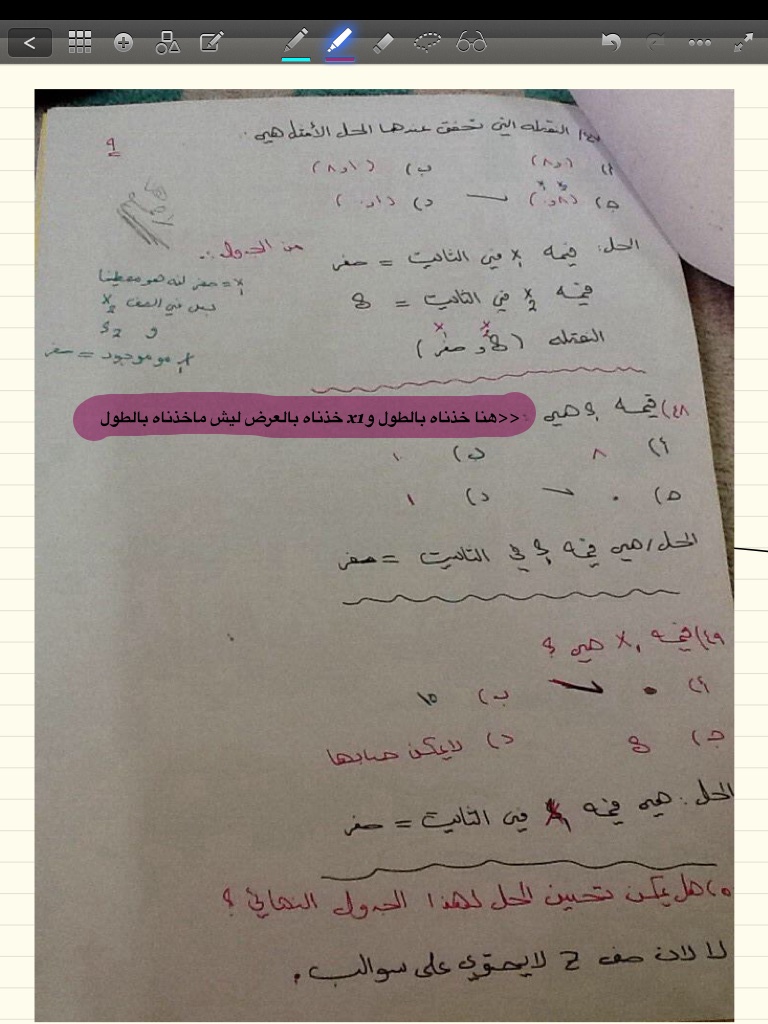 9
النقطه التي تحقق عندها الحل الأمثل هي
أ) (٨,١) ب) (٨,١)
ج) (٨,٠) د) (١,٠)
الحل: قيمة x₁ في الثابت = صفر من الجدول
قيمة x₂ في الثابت = 8
النقطه (8 و صفر)
x₁ = صفر لانه هو معطينا
بس في الصف x₂
و S₂
x₁ مو موجود = صفر
٤٨) قيمة S₁ هي
<<هنا خذناه بالطول وx1 خذناه بالعرض ليش ماخذناه بالطول
أ) ٨ ب) ١٠
ج) ٠ د) ١
الحل / هي قيمة S₁ في الثابت = صفر
٤٩) قيمة x₁ هي ؟
أ) ٠ ب) ١٠
ج) 8 د) لا يمكن حسابها
الحل: هي قيمة x₁ في الثابت = صفر
٥٠) هل يمكن تحسين الحل لهذا الجدول النهائي ؟
لا لان صف Z لا يحتوي على سوالب.